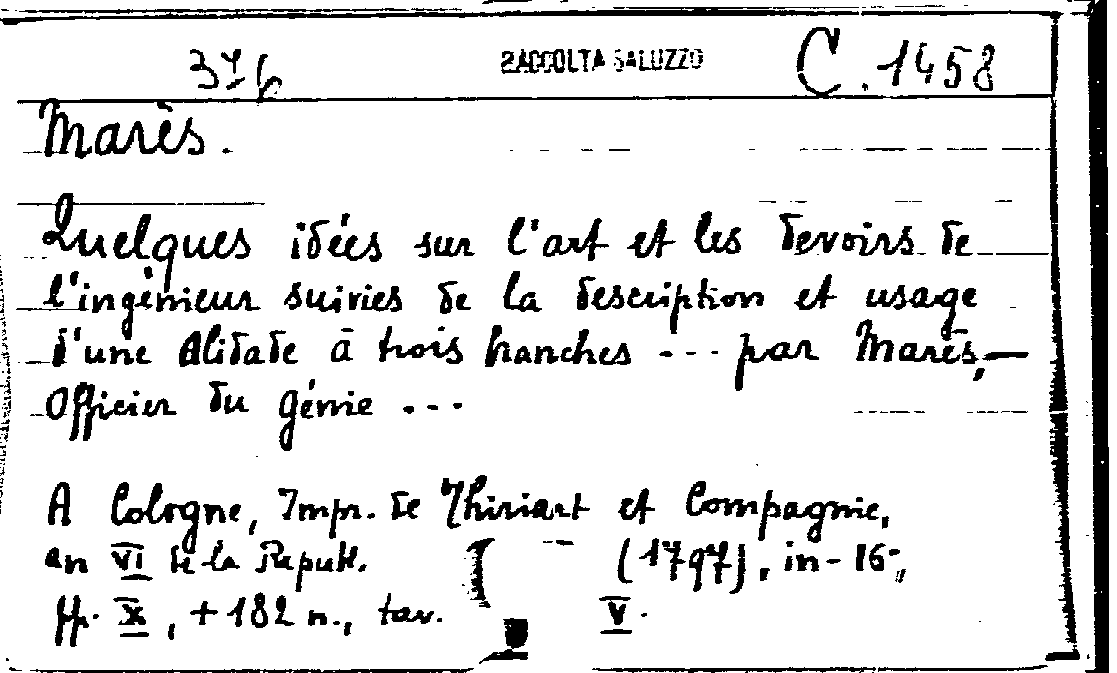 376 RACCOLTA SALUZZO C. 1458
Marès.
Quelques idées sur l'art et les devoirs de
l'ingénieur suivies de la description et usage
d'une Alidade à trois branches ... par Marès,—
Officier du génie ...
A Cologne, Impr. de Thiriart et Compagnie,
an VI de la Republ. (1797), in-16°,
pp. X, + 182 n., tav. V.